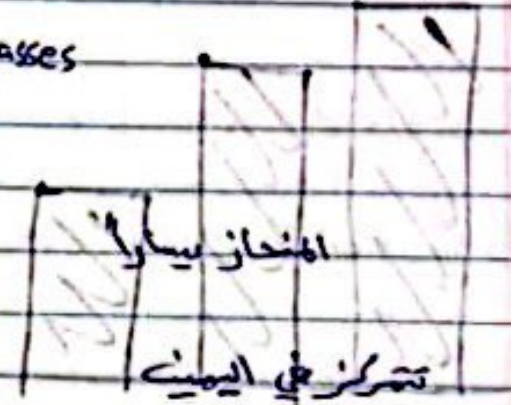 asses
المنحاز يسارا
تتمركز في اليمين